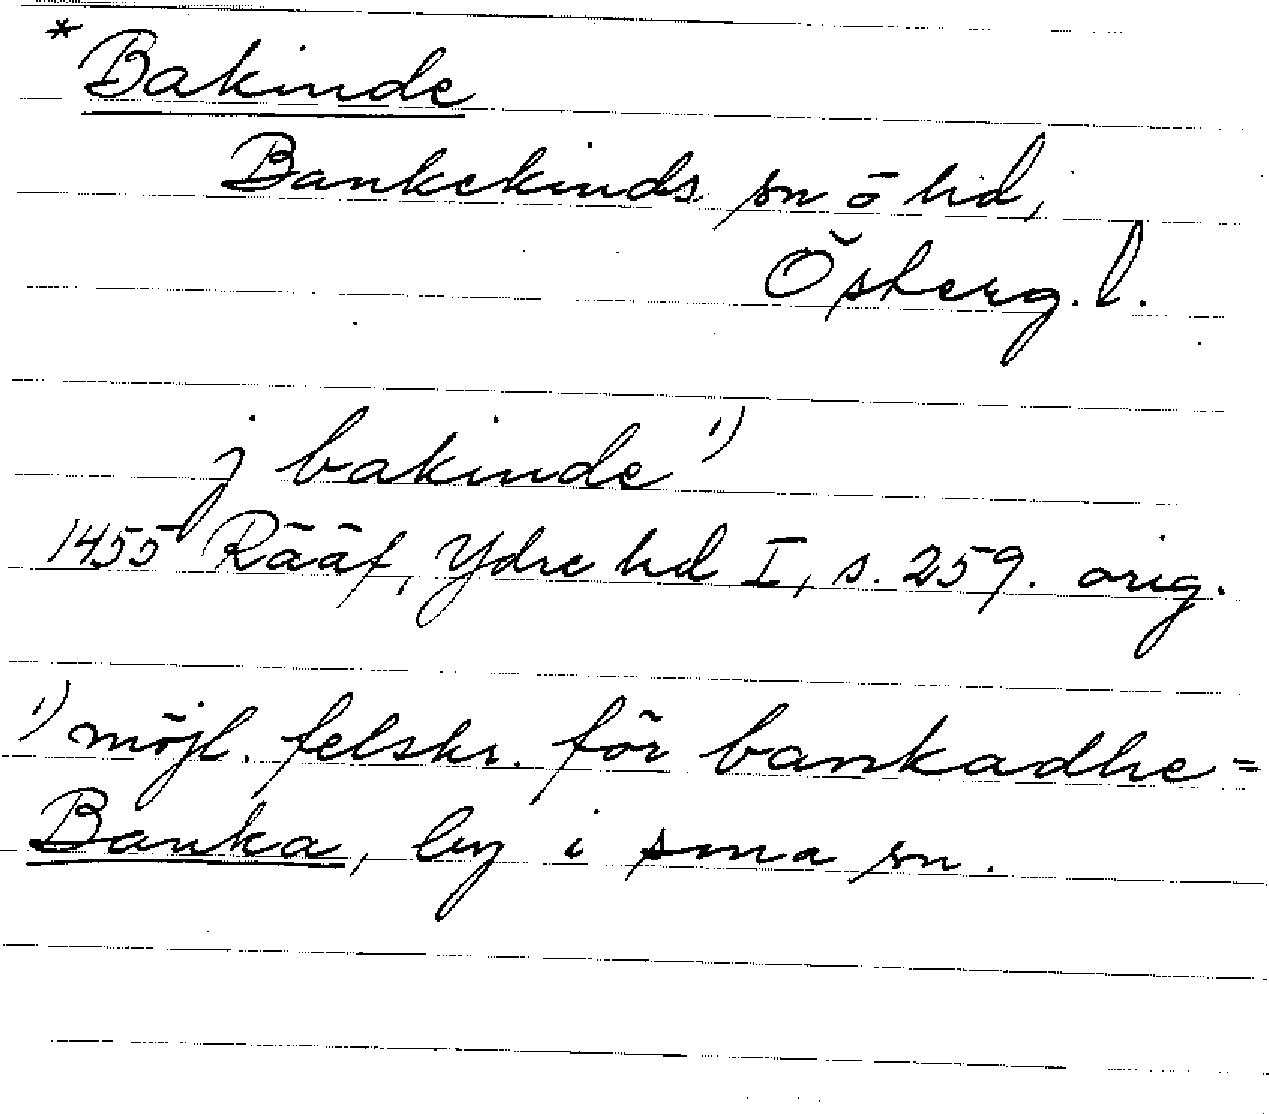 * Bakinde
Bankekinds sn o hd,
Österg. l.
j bakinde 1)
1455 Rääf, Ydre hd I, s. 259. orig.
1) möjl. felskr. för bankadhe =
Banka, by i sma sn.